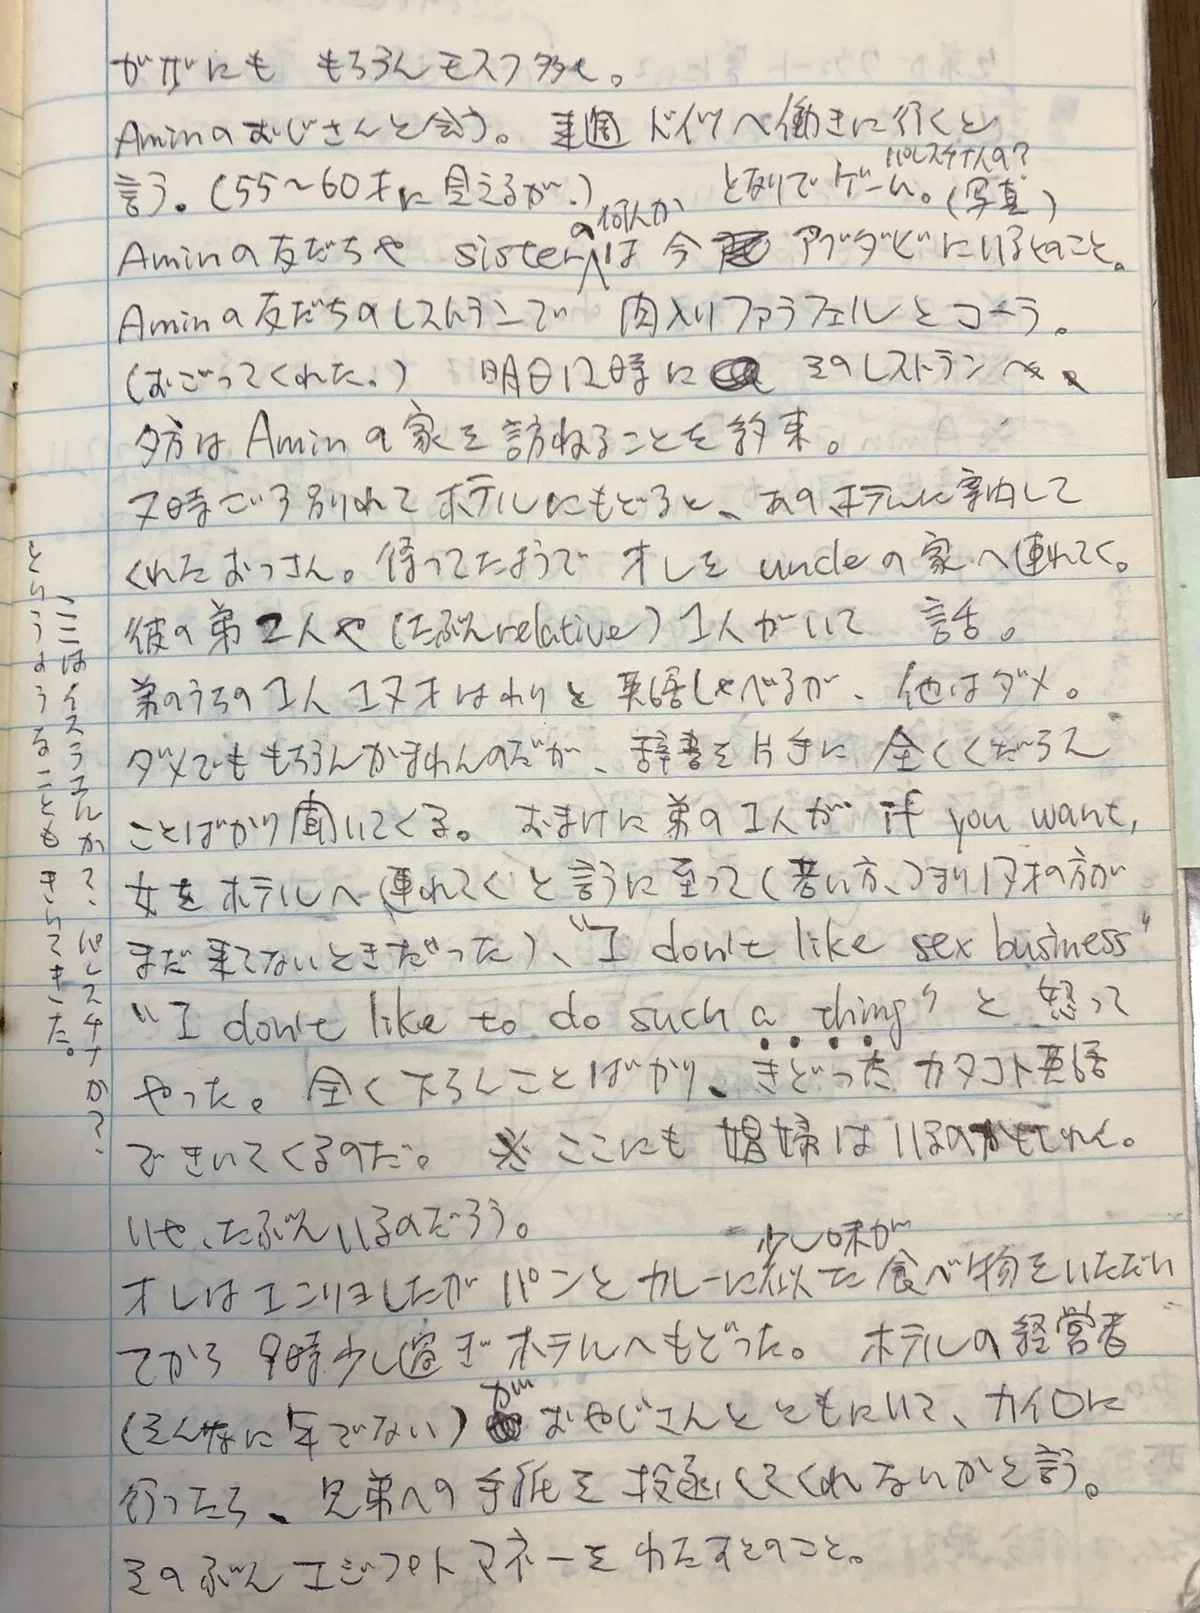 ガザにも もちろんモスク多し。
Aminのおじさんと会う。 来週 ドイツへ働きに行くと
言う。(55〜60才に見えるが。) となりでゲーム。(写真)
パレスチナ人の?
の何人か
Aminの友だちや sisterは 今 アブダビにいるとのこと。
Aminの友だちのレストランで 肉入りファラフェルとコーラ。
(おごってくれた。) 明日12時に そのレストランへ。
夕方はAminの家を訪ねることを約束。
7時ごろ別れてホテルにもどると、あのホテルに案内して
くれたおっさん。待ってたようで オレを uncleの家へ連れてく。
彼の弟2人や(たぶんrelative)1人がいて 話。
弟のうちの1人 17才はわりと 英語しゃべるが、他はダメ。
ダメでももちろんかまわんのだが、辞書を片手に 全くくだらん
ことばかり聞いてくる。 おまけに弟の1人が if you want,
女をホテルへ連れてくと言うに至って(若い方、つまり17才の方が
まだ来てないときだった)、"I don't like sex business"
"I don't like to do such a thing" と 怒って
やった。 全く下らんことばかり、きどった カタコト英語
できいてくるのだ。 ※ここにも 娼婦はいるのかもしれん。
いや、たぶんいるのだろう。
少し味が
オレはエンリョしたがパンとカレーに似た食べ物をいただい
てから 9時少し過ぎホテルへもどった。 ホテルの経営者
(そんなに年でない)が おやじさんとともにいて、カイロに
行ったら、兄弟への手紙を投函してくれないかと言う。
そのぶんエジプトマネーをわたすとのこと。
ここはイスラエルか?、パレスチナか?、
というようなこともきいてきた。